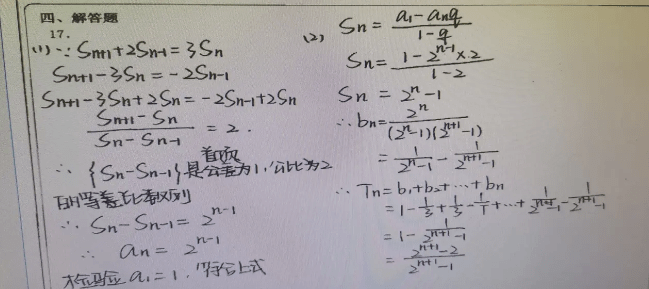 四、解答题
17.
(1) ∵ Sn+1+2Sn-1=3Sn
Sn+1-3Sn=-2Sn-1
Sn+1-3Sn+2Sn=-2Sn-1+2Sn
(Sn+1-Sn)/(Sn-Sn-1)=2.
∴ {Sn-Sn-1}是首项为1,公比为2
的等比数列
∴ Sn-Sn-1=2^(n-1)
∴ an=2^(n-1)
检验 a1=1,符合上式
(2) Sn=(a1-anq)/(1-q)
Sn=(1-2^(n-1)×2)/(1-2)
Sn=2^n-1
∴bn=2^n/((2^n-1)(2^(n+1)-1))
=1/(2^n-1)-1/(2^(n+1)-1)
∴ Tn=b1+b2+…+bn
=1-1/3+1/3-1/7+…+1/(2^n-1)-1/(2^(n+1)-1)
=1-1/(2^(n+1)-1)
=(2^(n+1)-2)/(2^(n+1)-1)